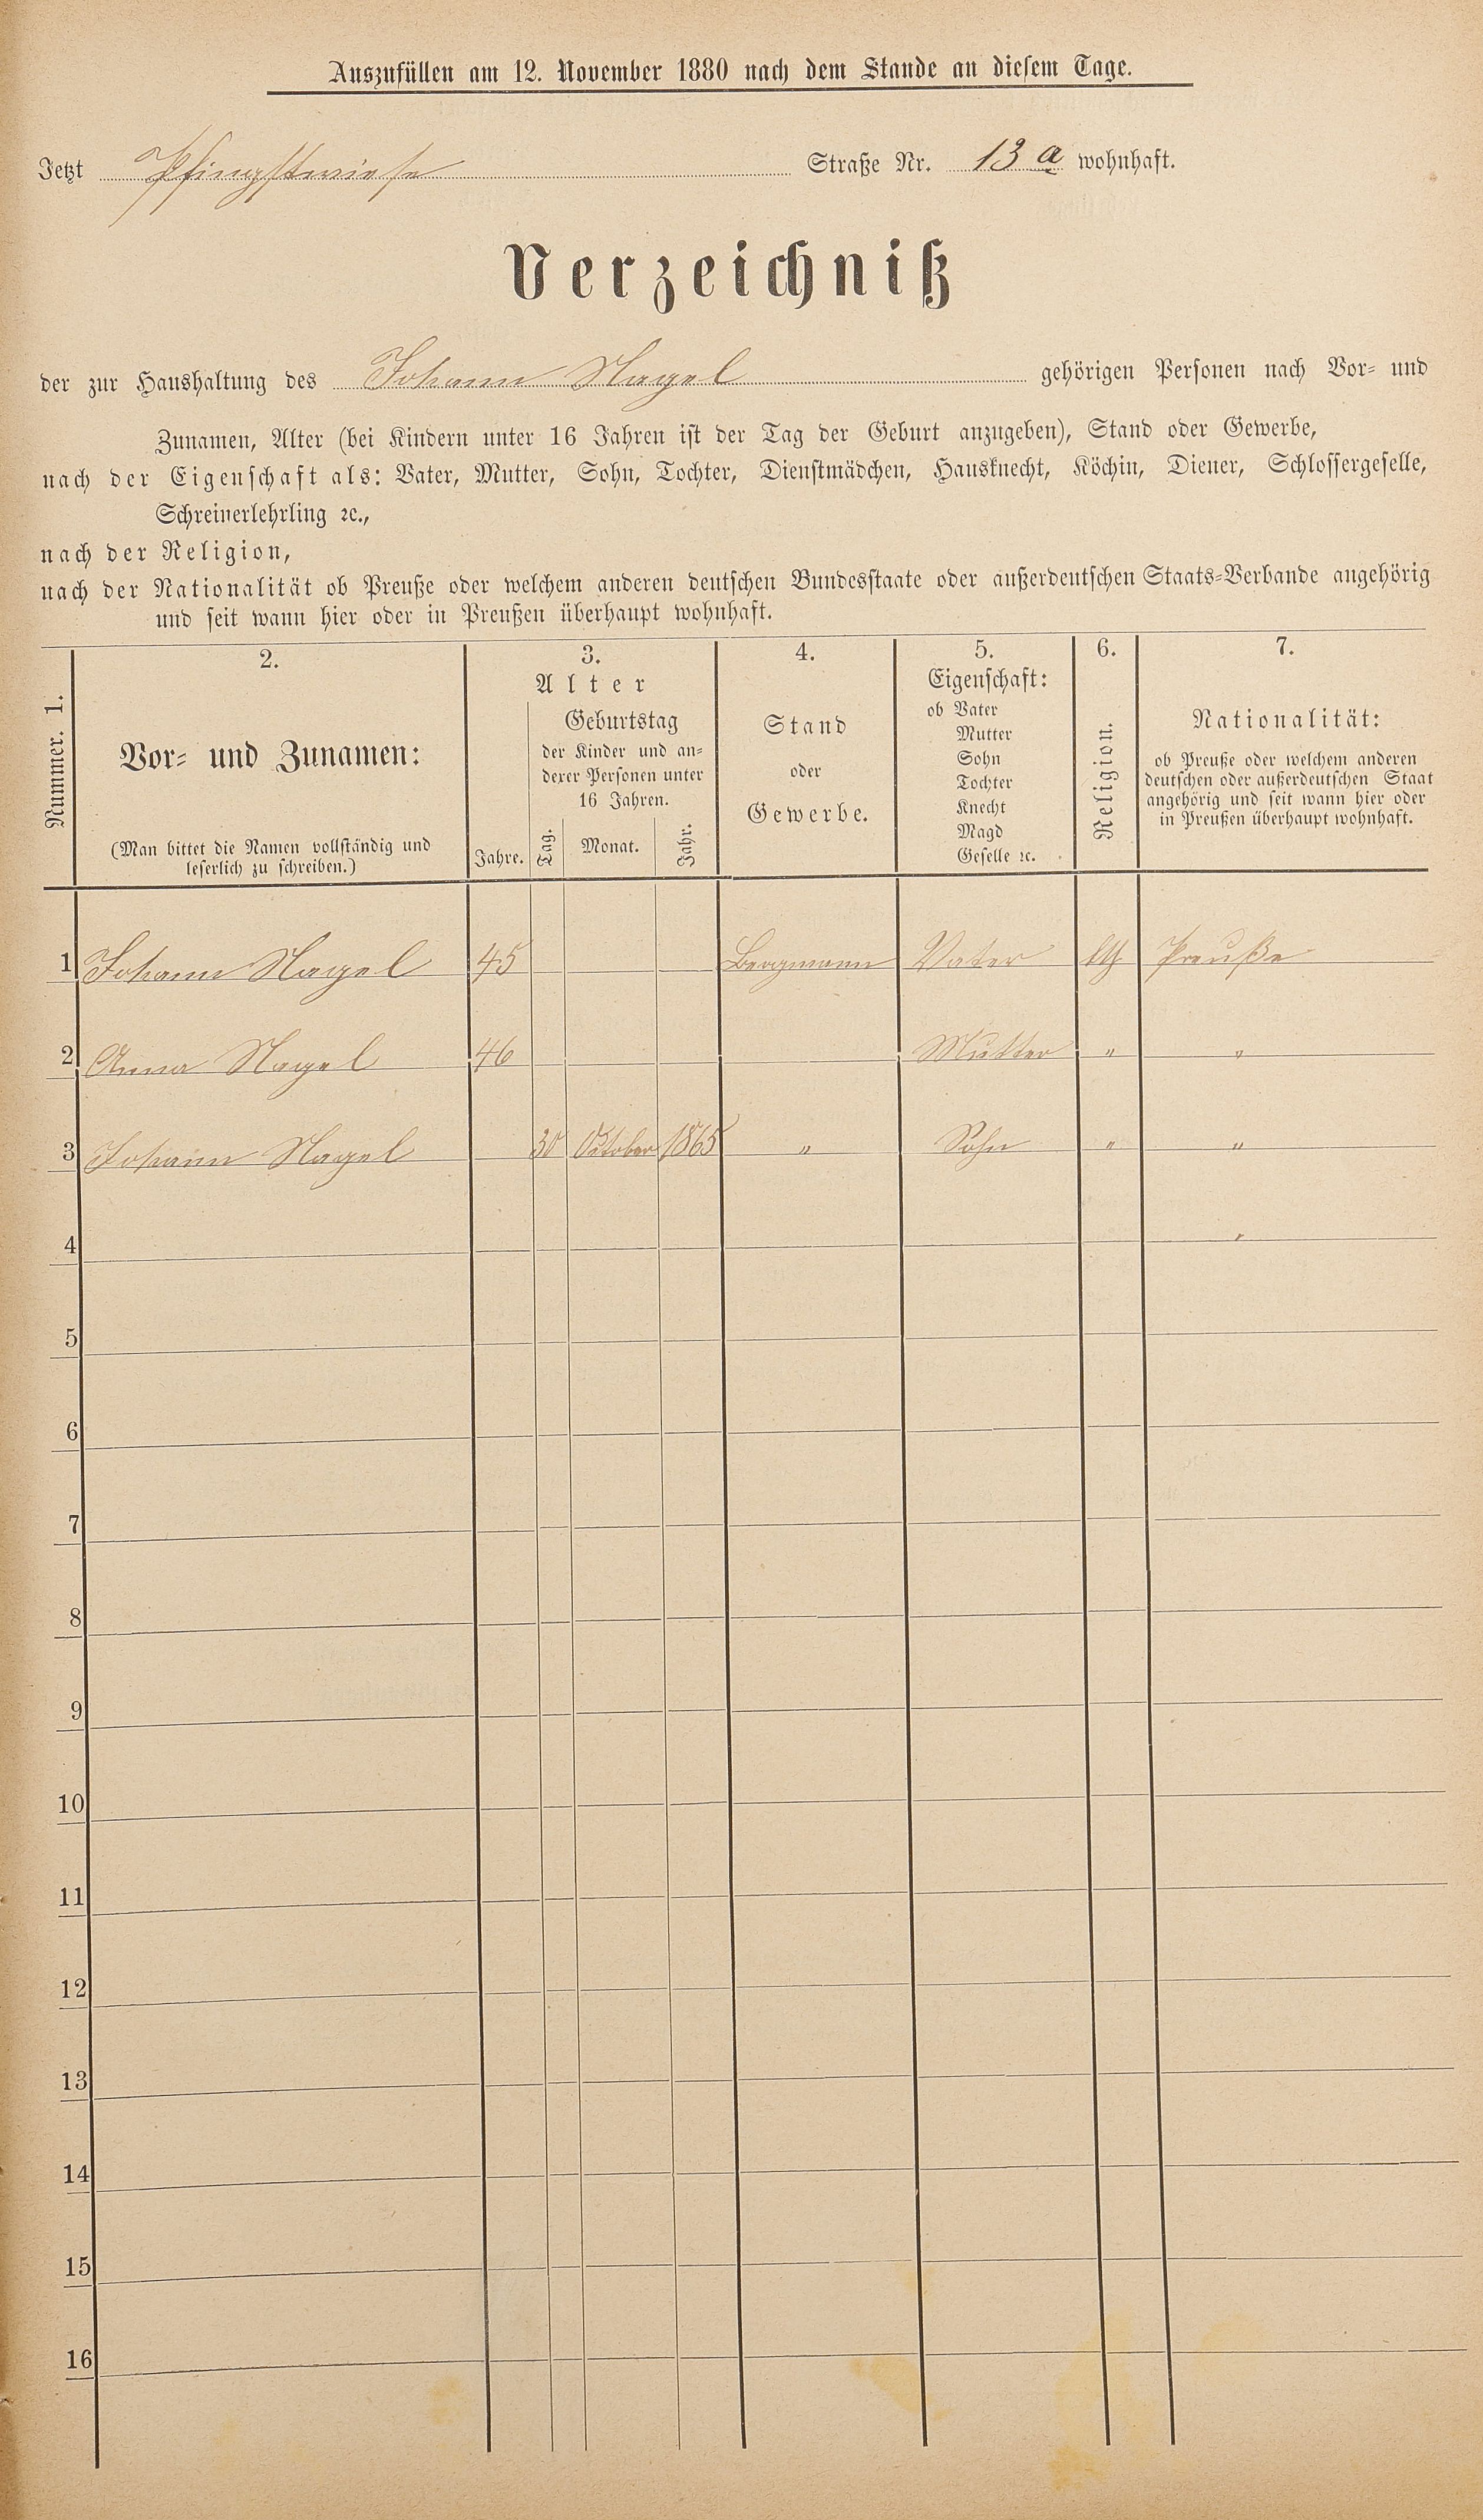 Auszufüllen am 12. November 1880 nach dem Stande an diesem Tage.
Jetzt Pfingstwiese Straße Nr. 13 a wohnhaft.
Verzeichniß
der zur Haushaltung des Johann Nagel gehörigen Personen nach Vor- und
Zunamen, Alter (bei Kindern unter 16 Jahren ist der Tag der Geburt anzugeben), Stand oder Gewerbe,
nach der Eigenschaft als: Vater, Mutter, Sohn, Tochter, Dienstmädchen, Hausknecht, Köchin, Diener, Schlossergeselle,
Schreinerlehrling ꝛc.,
nach der Religion,
nach der Nationalität ob Preuße oder welchem anderen deutschen Bundesstaate oder außerdeutschen Staats-Verbande angehörig
und seit wann hier oder in Preußen überhaupt wohnhaft.
Nummer. 1.
2.
Vor- und Zunamen:
(Man bittet die Namen vollständig und
leserlich zu schreiben.)
3.
Alter
Jahre.
Geburtstag
der Kinder und an-
derer Personen unter
16 Jahren.
Tag.
Monat.
Jahr.
4.
Stand
oder
Gewerbe.
5.
Eigenschaft:
ob Vater
Mutter
Sohn
Tochter
Knecht
Magd
Geselle ꝛc.
6.
Religion.
7.
Nationalität:
ob Preuße oder welchem anderen
deutschen oder außerdeutschen Staat
angehörig und seit wann hier oder
in Preußen überhaupt wohnhaft.
1 Johann Nagel 45 Bergmann Vater Preuße
2 Anna Nagel 46 Mutter " "
3 Johann Nagel 30 October 1865 " Sohn " "
4 "
5
6
7
8
9
10
11
12
13
14
15
16